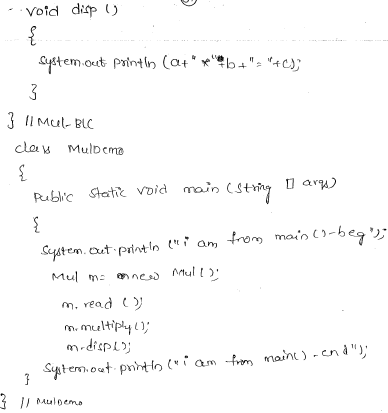 void disp ()
{
System.out.println (a+" *"+b+"= "+c);
}
} // Mul-BLC
class MulDemo
{
Public static void main (String [] args)
{
System.out.println ("i am from main()-beg");
Mul m= new Mul ();
m. read ();
m. multiply ();
m. disp ();
System.out.println ("i am from main() - end");
}
} // MulDemo